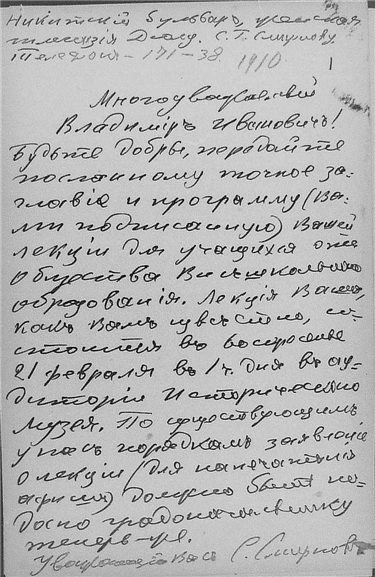 Никитскій бульваръ, женская
гимназія С. Г. Смирнову
Телефонъ - 171-38.
1910
1
Многоуважаемый
Владиміръ Ивановичъ!
Будьте добры, передайте
посланному точное за-
главіе и программу (Ва-
ми подписанную) Вашей
лекціи для учащихся отъ
Общества Внѣшкольнаго
образованія. Лекція Ваша,
какъ Вамъ извѣстно, со-
стоится въ воскресенье
21 февраля въ 1 ч. дня въ ау-
диторіи Историческаго
Музея. По существующимъ
у насъ порядкамъ заявленіе
о лекціи (для напечатанія
афиши) должно быть по-
дано градоначальнику
теперь-же.
Уважающій Васъ С. Смирновъ